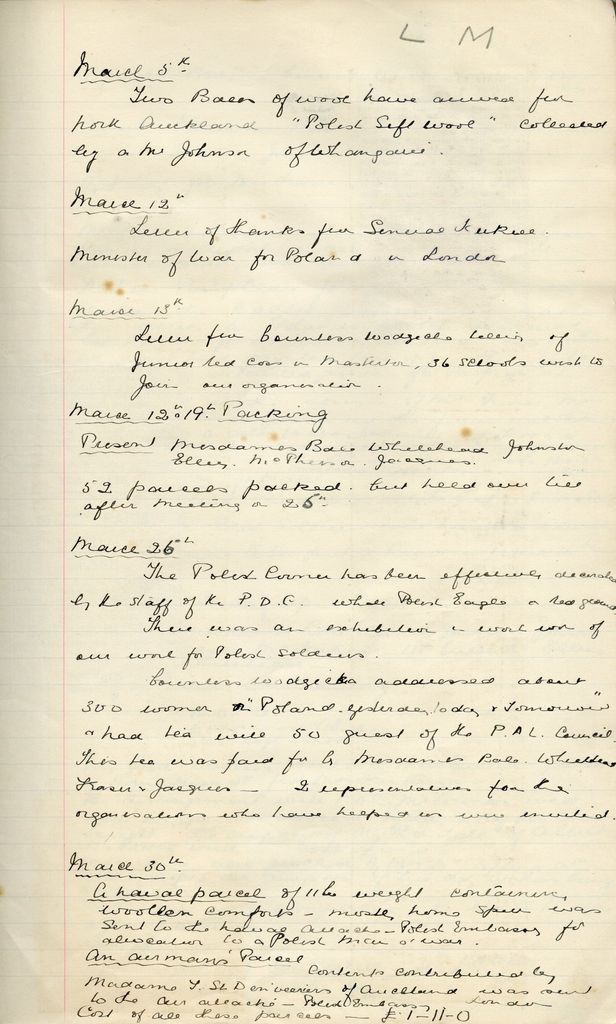 L M
March 5th
Two Bales of wool have arrived from
North Auckland "Polish Gift wool" collected
by a Mr Johnson of Whangarei.
March 12th
Letter of thanks from General Kukiel
Minister of War for Poland in London
March 13th
Letter from Countess Wodzicka telling of
Junior Red Cross in Masterton, 36 Schools wish to
Join our organisation.
March 12th & 19th Packing
Present Mesdames Whitehead Johnston
McPherson. Jacques.
52 parcels packed. but held over till
after meeting on 26th
March 26th
The Polish Corner has been effectively decorated
by the Staff of the P.D.C. white Polish Eagle on red ground
There was an exhibition in work room of
our work for Polish Soldiers.
Countess Wodzicka addressed about
300 women on "Poland yesterday, today & Tomorrow"
& had tea with 50 guests of the P.A.L. Council
This tea was paid for by Mesdames Whitehead
Fraser & Jacques — 2 representatives from the
organisations who have helped us were invited.
March 30th
A naval parcel of 11 lbs weight containing
woollen comforts — mostly home spun was
Sent to the Naval attache — Polish Embassy for
allocation to a Polish Man o' war.
An airman's Parcel Contents contributed by
Madame of Auckland was sent
to the air attaché — Polish Embassy London
Cost of all these parcels — £1-11-0